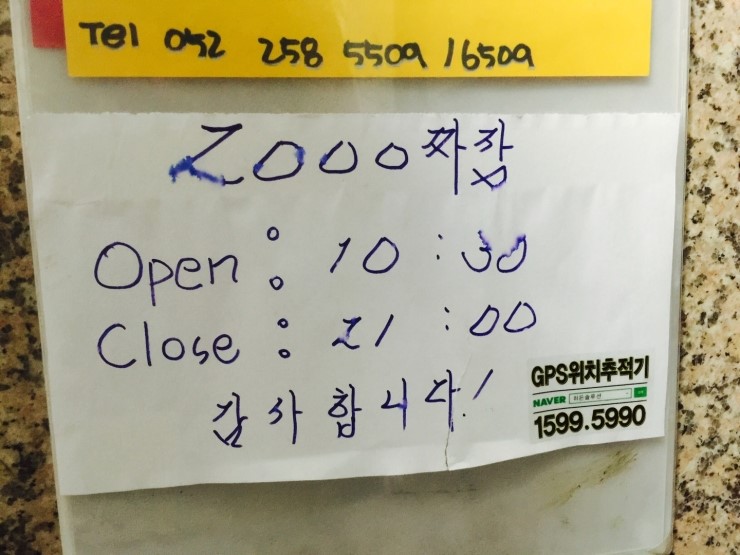 Tel 052 258 5509 16509
2000짜장
Open : 10 : 30
Close : 21 : 00
감사합니다!
GPS위치추적기
NAVER
1599.5990